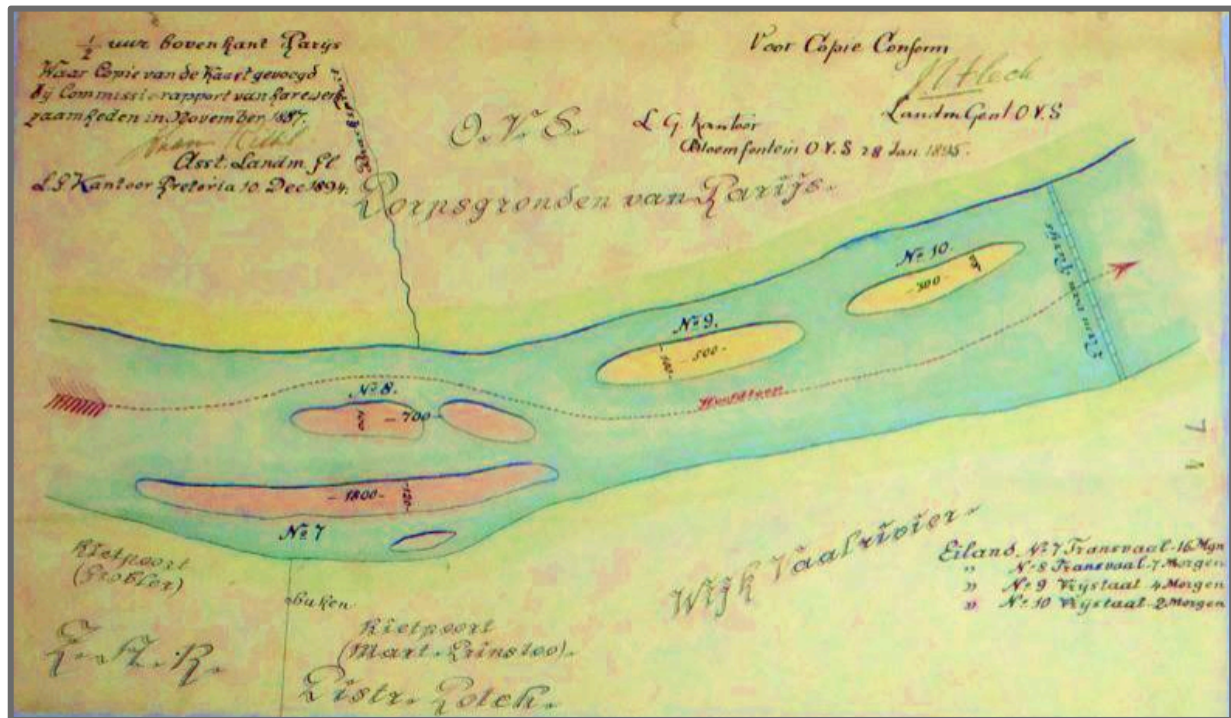 ½ uur bovenkant Parijs
Waar Copie van de Kaart gevoegd
bij Commissierapport van hare werk
zaamheden in November 1887.
Asst. Landm. Gl
L.G. Kantoor Pretoria 10 Dec 1894.
Voor Copie Conform
Landm Genl O V S
L G. Kantoor
Bloemfontein O V. S 28 Jan. 1895.
O. V. S.
Dorpsgronden van Parijs.
No 10.
-300-
No 9.
100
-500-
Dam van Parijs
No 8.
-700-
Hoofdstroom
-1800-
120
No 7
74
Rietpoort
(Grobler)
baken
Rietpoort
(Mart. Prinsloo).
Z. A. R.
Distr. Potch.
Wijk Vaalrivier.
Eiland No 7 Transvaal 16 Mgn
" No 8 Transvaal 7 Morgen
" No 9 Vrijstaat 4 Morgen
" No 10 Vrijstaat 2 Morgen